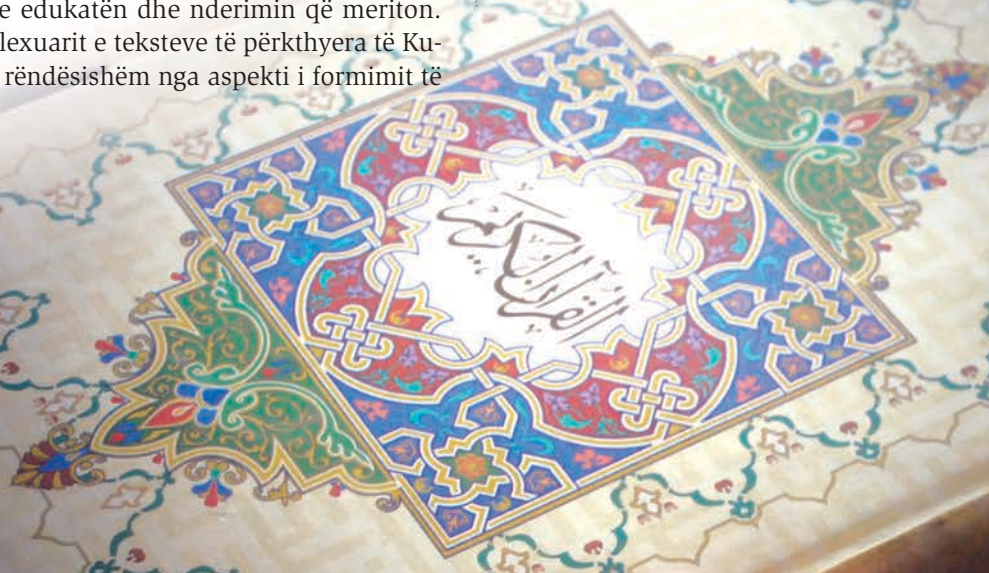 e edukatën dhe nderimin që meriton.
lexuarit e teksteve të përkthyera të Ku-
rëndësishëm nga aspekti i formimit të
القرآن الكريم